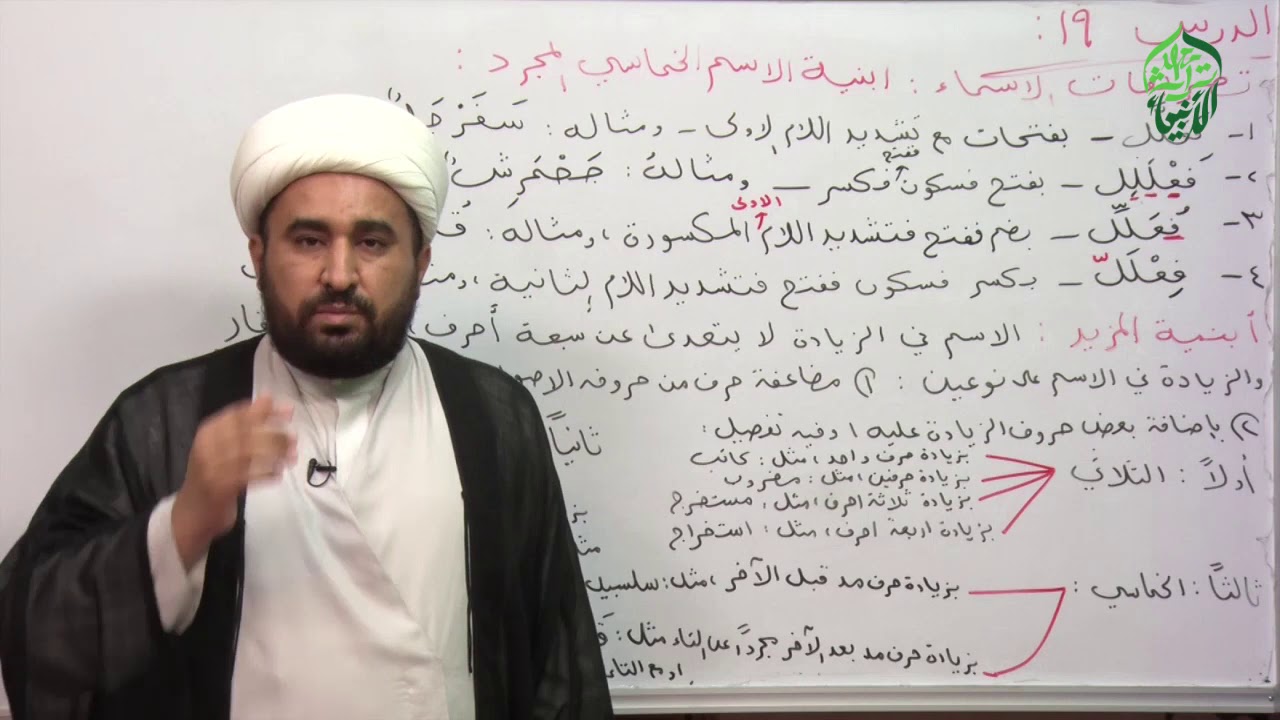 الدرس ١٩ :
الاسماء : ابنية الاسم الخماسي المجرد :
١- بفتحات مع تشديد اللام الاولى - ومثاله : سَفَرْجَل
٢- فَعْلَلِل - بفتح فسكون ففتح فكسر - ومثالهُ : جَحْمَرِش
٣- فُعَلِّل - بضم ففتح فتشديد اللام الاولى المكسورة ، ومثاله :
٤- فِعْلَلّ - بكسر فسكون ففتح فتشديد اللام الثانية ،
أبنية المزيد : الاسم في الزيادة لا يتعدى عن سبعة أحرف
والزيادة في الاسم على نوعين : ١) مضاعفة حرف من حروفه
٢) بإضافة بعض حروف الزيادة عليه ، وفيه تفصيل :
أولاً : الثلاثي
بزيادة حرف واحد ، مثل : كاتب
بزيادة حرفين ، مثل : مضروب
بزيادة ثلاثة احرف ، مثل : مستخرج
بزيادة اربعة احرف ، مثل : استخراج
ثانياً
ثالثاً : الخماسي :
بزيادة حرف مد قبل الآخر ، مثل : سلسبيل
بزيادة حرف مد بعد الآخر مجرداً عن التاء مثل :
او مع التاء